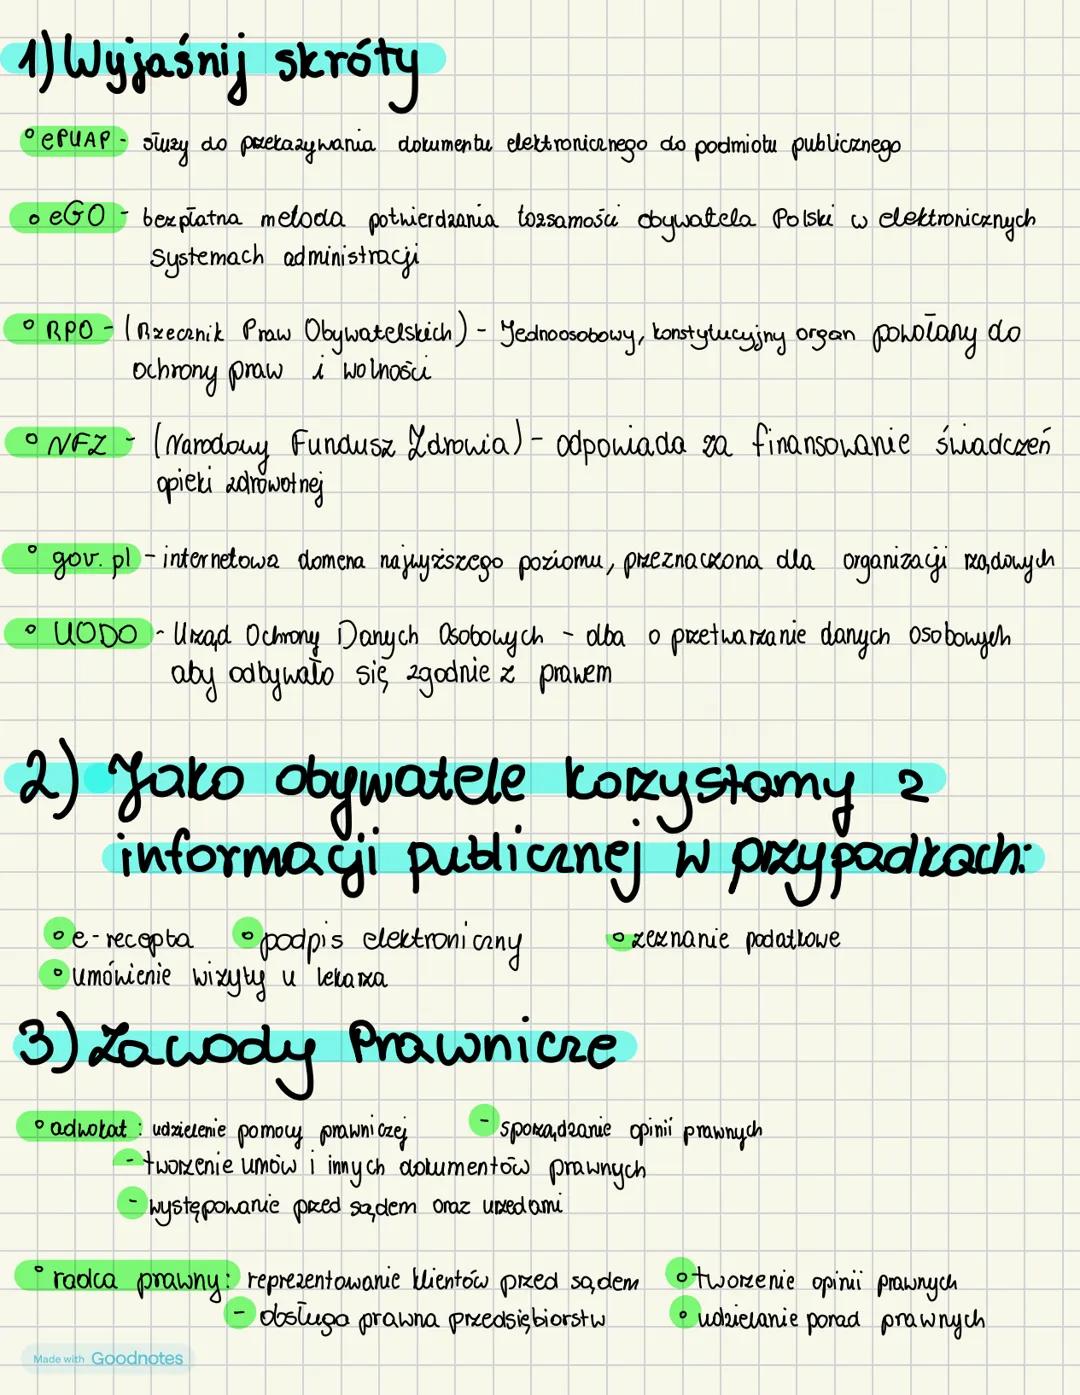 1) Wyjaśnij skróty
° ePUAP - służy do przekazywania dokumentu elektronicznego do podmiotu publicznego
° eGO - bezpłatna metoda potwierdzania tożsamości obywatela Polski w elektronicznych
systemach administracji
° RPO - (Rzecznik Praw Obywatelskich) - Jednoosobowy, konstytucyjny organ powołany do
ochrony praw i wolności
° NFZ - (Narodowy Fundusz Zdrowia) - odpowiada za finansowanie świadczeń
opieki zdrowotnej
° gov.pl - internetowa domena najwyższego poziomu, przeznaczona dla organizacji rządowych
° UODO - Urząd Ochrony Danych Osobowych - dba o przetwarzanie danych osobowych
aby odbywało się zgodnie z prawem
2) Jako obywatele korzystamy z
informacji publicznej w przypadkach:
° e-recepta ° podpis elektroniczny ° zeznanie podatkowe
° umówienie wizyty u lekarza
3) Zawody Prawnicze
° adwokat : udzielenie pomocy prawniczej - sporządzanie opinii prawnych
- tworzenie umów i innych dokumentów prawnych
- występowanie przed sądem oraz urzedami
° radca prawny : reprezentowanie klientów przed sądem ° tworzenie opinii prawnych
- obsługa prawna przedsiębiorstw ° udzielanie porad prawnych
Made with Goodnotes